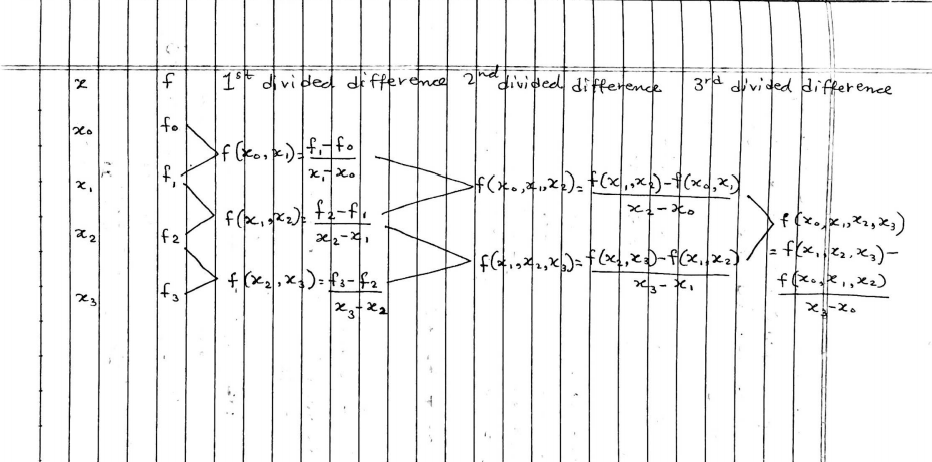 x f 1st divided difference 2nd divided difference 3rd divided difference
x₀ f₀
f(x₀, x₁) = f₁-f₀ / x₁-x₀
x₁ f₁ f(x₀,x₁,x₂) = f(x₁,x₂)-f(x₀,x₁) / x₂-x₀
f(x₁,x₂) = f₂-f₁ / x₂-x₁ f(x₀,x₁,x₂,x₃)
x₂ f₂ = f(x₁,x₂,x₃)-
f(x₁,x₂,x₃) = f(x₂,x₃)-f(x₁,x₂) / x₃-x₁ f(x₀,x₁,x₂)
f(x₂,x₃) = f₃-f₂ / x₃-x₂ x₃-x₀
x₃ f₃